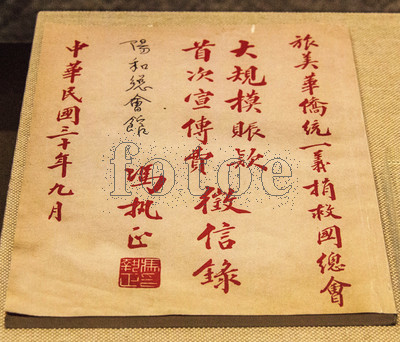 旅美華僑統一義捐救國總會
大規模賑欵
首次宣傳費徵信錄
馮執正
陽和總會館
中華民國三十年九月
fotoe